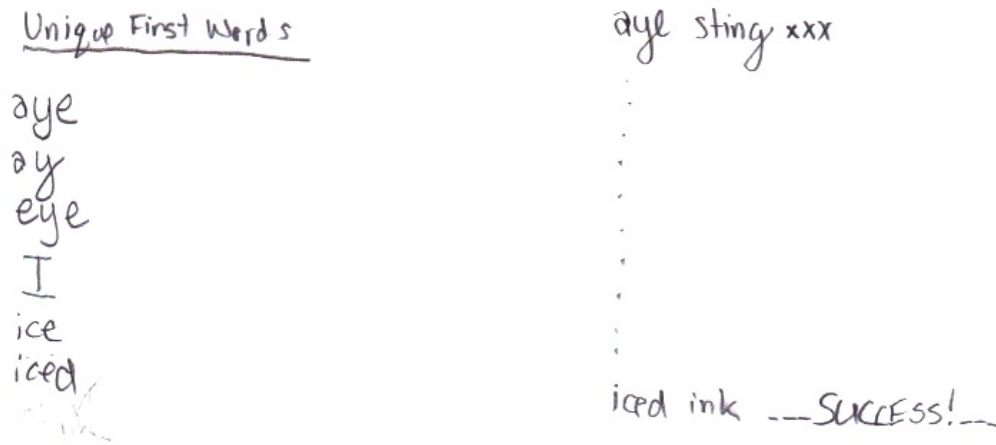 Unique First Words
aye
ay
eye
I
ice
iced
aye sting xxx
.
.
.
.
.
.
.
.
.
iced ink ---SUCCESS!---